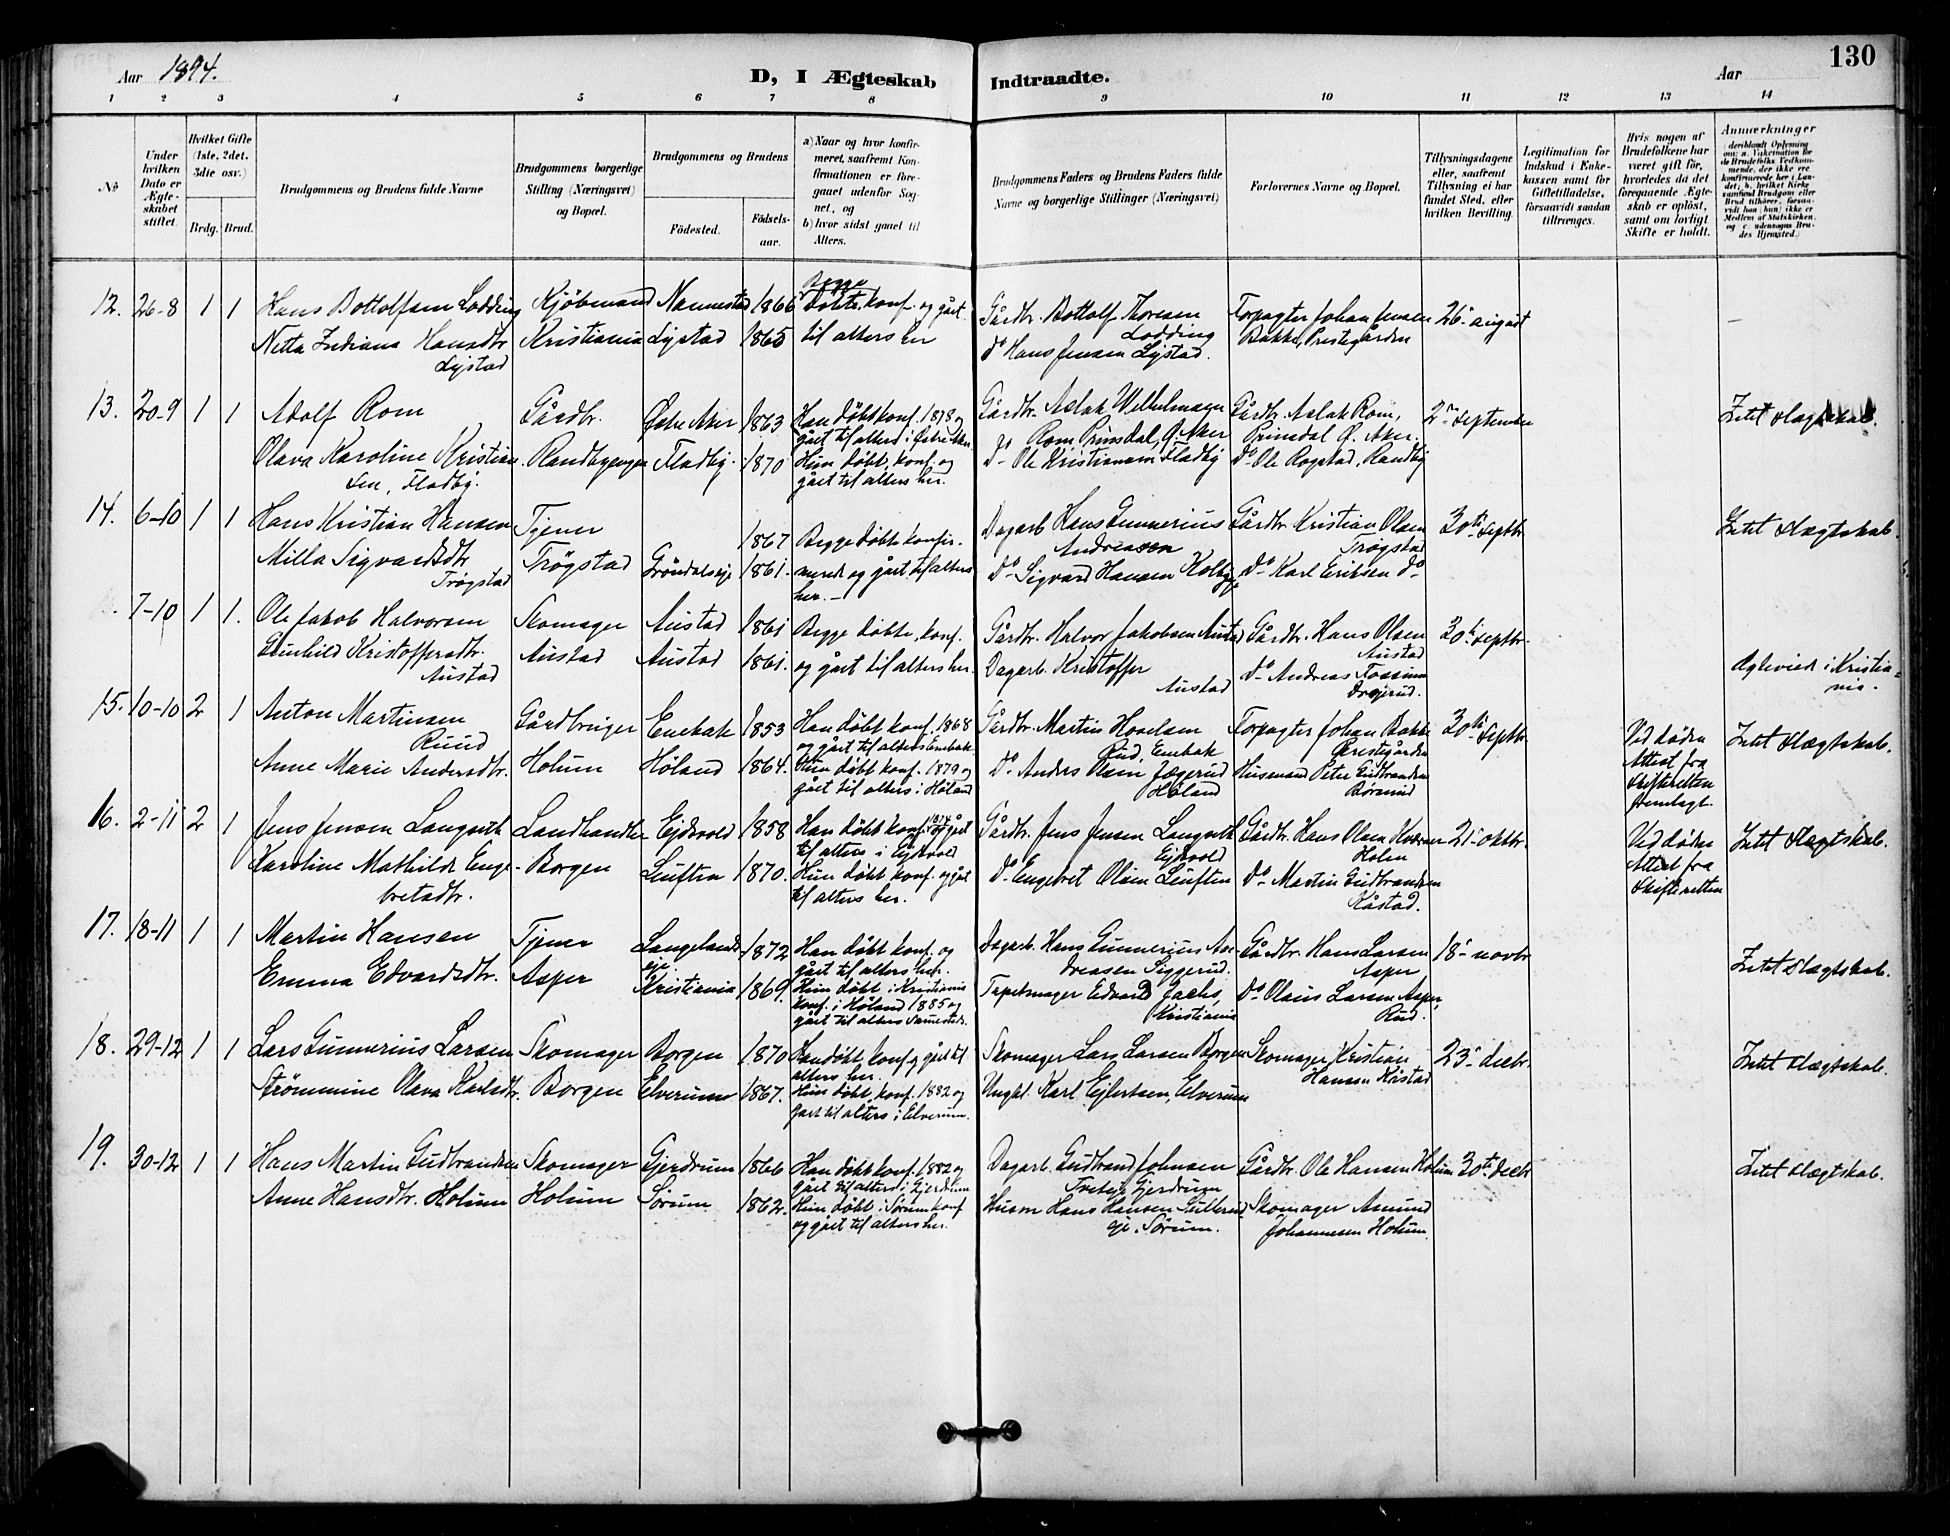 130
Aar 1894. D, I Ægteskab Indtraadte. Aar
1 2 3 4 5 6 7 8 9 10 11 12 13 14
№
Under hvilken Dato er Ægteskabet stiftet.
Hvilket Gifte (1ste, 2det, 3die osv.)
Brdg. Brud.
Brudgommens og Brudens fulde Navne
Brudgommens borgerlige Stilling (Næringsvei) og Bopæl.
Brudgommens og Brudens
Födested. Födselsaar.
a) Naar og hvor konfirmeret, saafremt Konfirmationen er foregaaet udenfor Sognet, og
b) hvor sidst gaaet til Alters.
Brudgommens Faders og Brudens Faders fulde Navne og borgerlige Stillinger (Næringsvei)
Forlovernes Navne og Bopæl.
Tillysningsdagene eller, saafremt Tillysning ei har fundet Sted, efter hvilken Bevilling.
Legitimation for Indskud i Enkekassen samt for Giftetilladelse, forsaavidt saadan tiltrænges.
Hvis nogen af Brudefolkene har været gift för, hvorledes da det foregaaende Ægteskab er oplöst, samt om lovligt Skifte er holdt.
Anmærkninger (deriblandt Oplysning om: a. Vakcination for de Brudefolks Vedkommende, der ikke ere konfirmerede her i Landet; b. hvilket Kirkesamfund Brudgom eller Brud tilhörer, forsaavidt han (hun) ikke er Medlem af Statskirken og c. udensogns Brudes Hjemsted.)
12. 26-8 1 1 Hans Bottolfsen Lodding Kjöbmand Nannestad 1866 Begge döbte, konf. og gået Gårdbr. Bottolf Thoresen Forpagter Johan Jensen 26. august
Netta Indiana Hansdtr. Kristiania Lystad 1865 til alters her Lodding Bakke, Prestegården
Lystad Do Hans Jensen Lystad.
13. 20-9 1 1 Adolf Rom Gårdbr. Östre Aker 1863 Han döbt konf. 1878 og Gårdbr. Aslak Wilhelmsen Gårdbr. Aslak Rom, 2den september Intet slægtskab.
gået til alters i Östre Aker Rom Prinsdal, Ö. Aker Prinsdal Ö. Aker.
Olava Karoline Kristian- Randbygengen Fladby. 1870 Hun döbt, konf. og Do Ole Kristiansen Fladby Do Ole Rogstad, Randby
sen, Fladby. gået til alters her.
14. 6-10 1 1 Hans Kristian Hansen Tjener 1867 Begge döbte konfir- Dagarb. Hans Gunnerius Gårdbr. Kristian Olsen 30te septbr. Intet slægtskab.
Milla Sigvardsdtr. Trögstad Gröndalseje 1861. meret og gået til alters Andreasen Trögstad
Trögstad her.- Do Sigvard Hansen Kolbyeje Do Karl Eriksen Do
7-10 1 1. Ole Jakob Halvorsen Skomager Austad 1861 Begge döbte, konf. Gårdbr. Halvor Jakobsen Austad Gårdbr. Hans Olsen 30te septbr.
Gunhild Kristoffersdtr. Austad Austad 1861. og gået til alters her. Dagarb. Kristoffer Austad Ægteviede i Kristia-
Austad Austad Do Andreas Fossum nia.
15. 10-10 2 1 Anton Martinsen Gårdbruger Enebak 1853 Han döbt konf. 1868 Gårdbr. Martin Hoelsen Forpagter Johan Bakke 30te septbr. Ved döden Intet slægtskab.
Ruud og gået til alters Enebak Rud, Enebak Prestegården Attest fra
Anne Marie Andersdtr. Holum Höland 1864. Hun döbt konf. 1879 og Do Anders Olsen Jægerud Husmand Peter Gudbrandsen Skifteretten
gået til alters i Höland Höland fremlagt.
16. 2-11 2 1 Jens Jensen Langseth Landhandler Ejdsvold 1858 Han döbt konf. 1874 og gået Gårdbr. Jens Jensen Langseth Gårdbr. Hans Olsen 21. oktbr. Ved döden Intet slægtskab.
til alters i Ejdsvold Ejdsvold Holen Attest fra
Karoline Mathilde Enge- Borgen 1870. Hun döbt konf. og gået Do Engebret Olsen Do Martin Gudbrandsen Skifteretten
bretsdtr. til alters her. Kåstad.
17. 18-11 1 1 Martin Hansen Tjener Langelands- 1872 Han döbt konf. og Dagarb. Hans Gunnerius An- Gårdbr. Hans Larsen 18. novbr. Intet slægtskab.
eje gået til alters her. dreasen Siggerud. Asper
Emma Edvardsdtr. Asper Kristiania 1869. Hun döbt i Kristiania Tapetmager Edvard Jachs, Do Olaus Larsen Asper,
konf. i Höland 1885 og Kristiania Rud.
gået til alters sammesteds.
18. 29-12 1 1 Lars Gunnerius Larsen Skomager Borgen 1870 Han döbt, konf. og gået til Skomager Lars Larsen Borgen Skomager Kristian 23. decbr. Intet slægtskab.
alters her. Hansen Kåstad
Strömmine Olava Karlsdtr. Borgen Elverum 1867. Hun döbt, konf. 1882 og Ungkl. Karl Ejlertsen, Elverum
gået til alters i Elverum.
19. 30-12 1 1 Hans Martin Gudbrandsen Skomager Gjerdrum 1866 Han döbt konf. 1882 og Dagarb. Gudbrand Johnsen Gårdbr. Ole Hansen Holum 30te decbr. Intet slægtskab.
gået til alters i Gjerdrum Gjerdrum
Anne Hansdtr. Holum Holum Sörum 1862. Hun döbt i Sörum konf. Husm. Hans Hansen Gulleruds- Skomager Amund
og gået til alters her. eje, Sörum. Johannesen Holum.